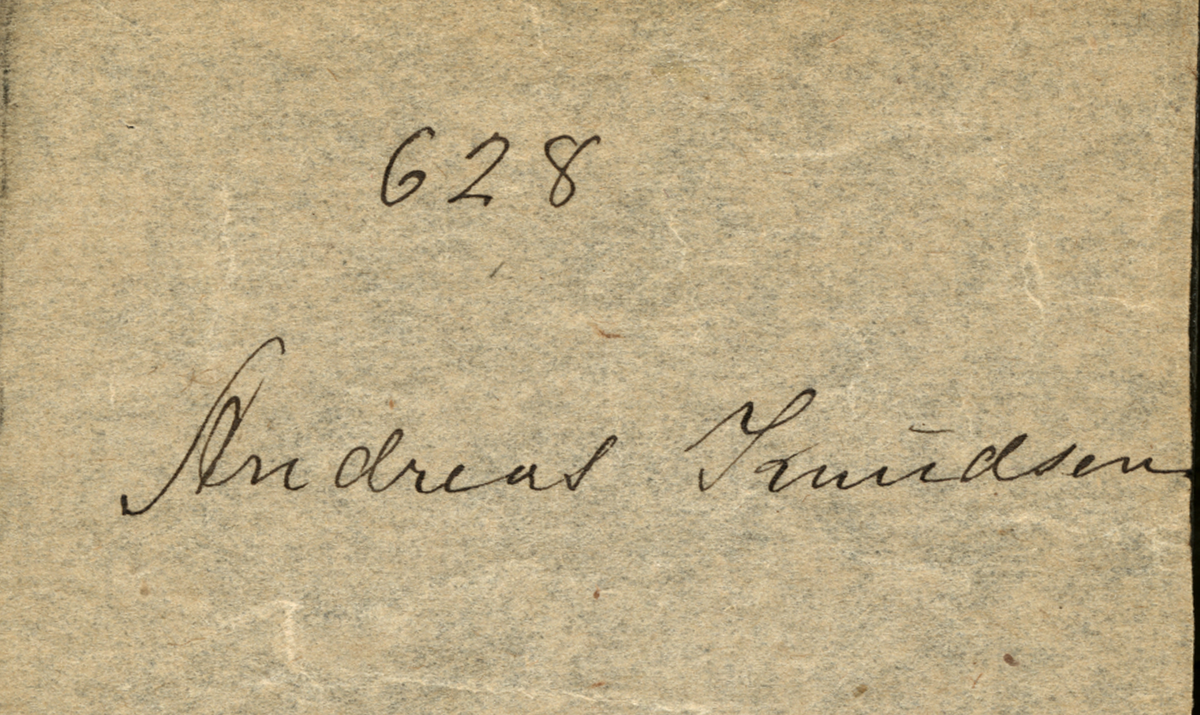 628
Andreas Knudsen